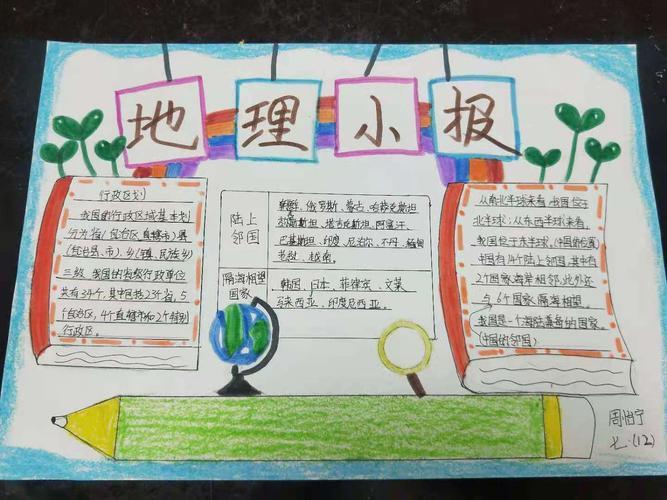 地理小报
行政区划
我国的行政区域基本划
分为省(自治区、直辖市)、县
(自治县、市)、乡(镇、民族乡)
三级。我国的省级行政单位
共有34个,其中包括23个省,5
个自治区,4个直辖市和2个特别
行政区。
陆上
邻国
朝鲜、俄罗斯、蒙古、哈萨克斯坦
吉尔吉斯斯坦、塔吉克斯坦、阿富汗、
巴基斯坦、印度、尼泊尔、不丹、缅甸
老挝、越南。
隔海相望
国家
韩国、日本、菲律宾、文莱
马来西亚、印度尼西亚。
从南北半球来看,我国位于
北半球;从东西半球来看,
我国位于东半球。(中国的位置)
中国有14个陆上邻国,其中有
2个国家海岸相邻,此外还
与6个国家隔海相望。
我国是一个海陆兼备的国家
(中国的邻国)
周怡宁
七·(12)